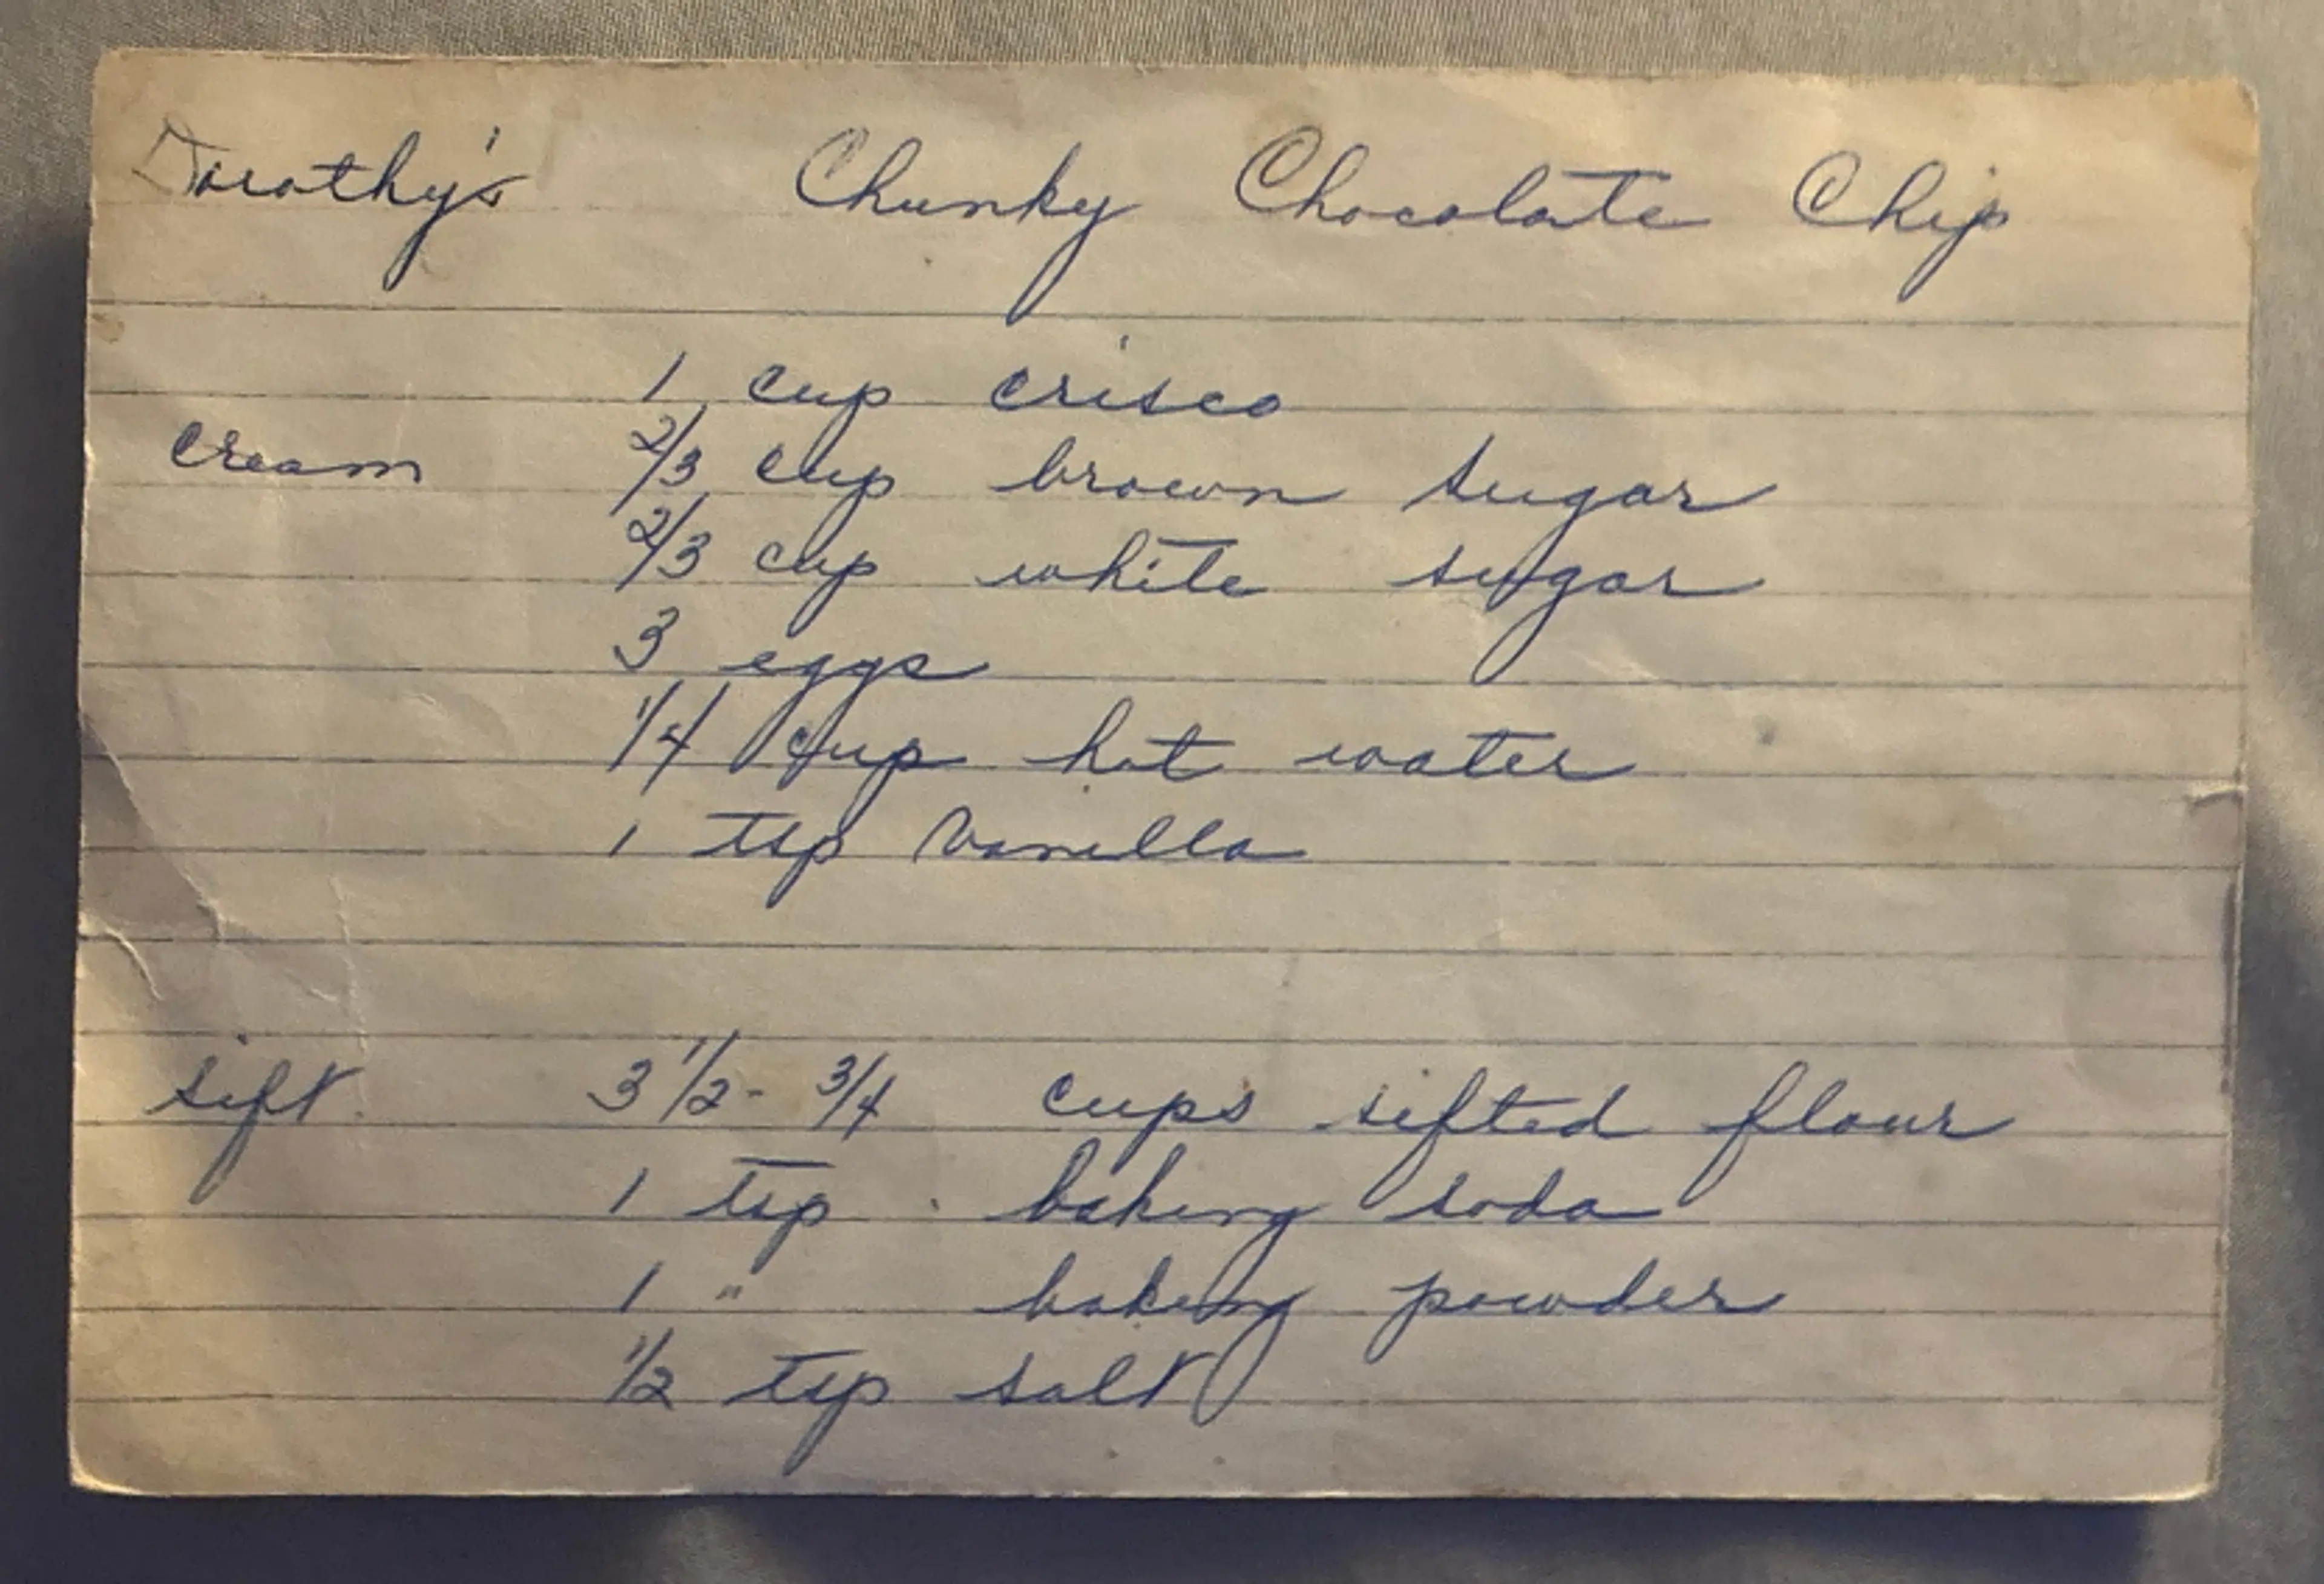 Dorothy's Chunky Chocolate Chip
1 cup crisco
cream 2/3 cup brown sugar
2/3 cup white sugar
3 eggs
1/4 cup hot water
1 tsp vanilla
sift 3 1/2 - 3/4 cups sifted flour
1 tsp baking soda
1 " baking powder
1/2 tsp salt